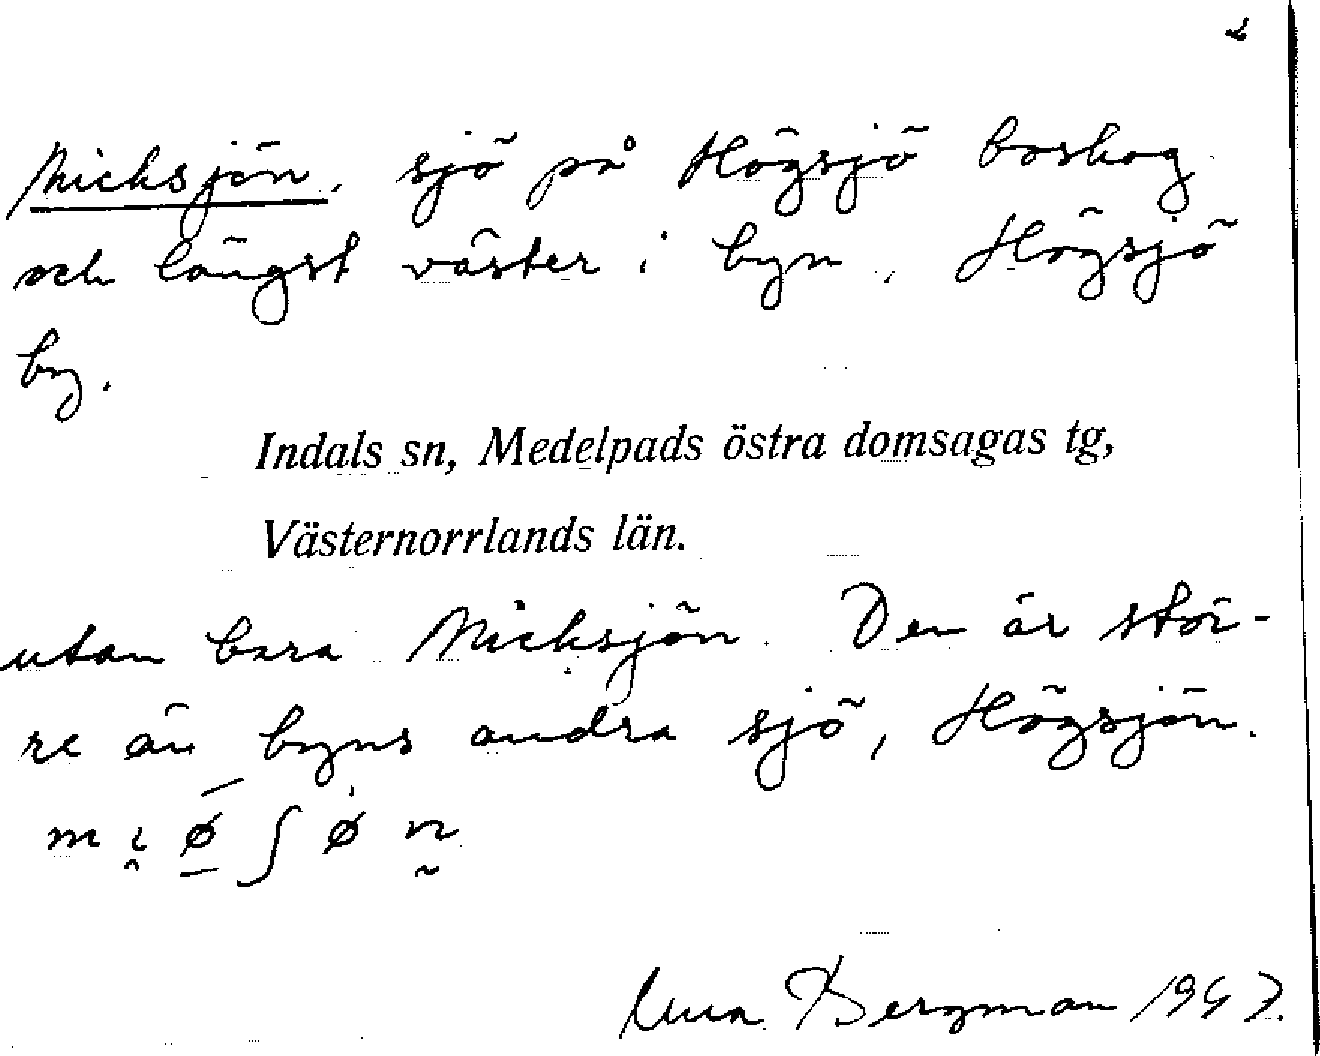 Micksjön, sjö på Högsjö boskog
och längst väster i byn, Högsjö
by.
Indals sn, Medelpads östra domsagas tg,
Västernorrlands län.
utan bara Micksjön. Den är stör-
re än byns andra sjö, Högsjön.
Bergman